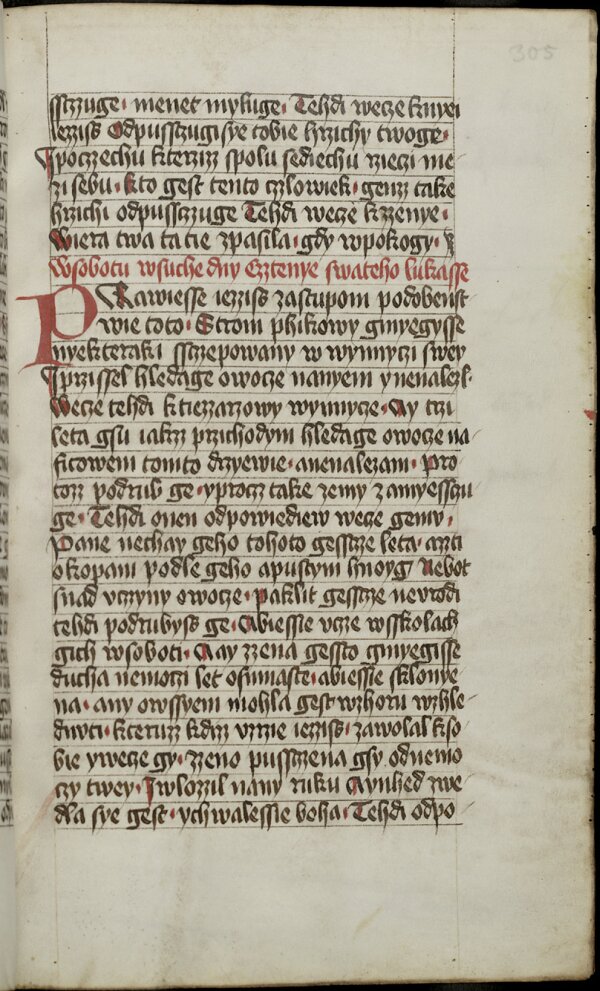 305
sstzuge · menet myluge · Tehdi wecze knyei
iezziss Odpusstzugi sye tobie hrzichy twoge ·
Ipoczechu kterziz spolu sediechu rzieczi me
zi sebu · kto gest tento czlowiek · genz take
hrzichi odpusstzuge Tehdi wecze k zzenye ·
Wiera twa ta tie zpasila · gdy w pokogy ·
W sobotu w suche dny Cztenye swateho lukasse
PRawiesse iezziss zastupom podobenst
wie toto · Strom phikowy gmyegysse
nyekteraki sstzepowany w wynnyczi swey
Iprzissel hledage owocze nanyem ynenalezl ·
Wecze tehdi ktiezzarzowy wynnycze · Ay trzi
leta gsu iakz przichodym hledage owocze na
ficowem tomto drzyewie · anenalezam · Pro
toz podrub ge · yprocz take zemy zamyesstzu
ge · Tehdi onen odpowiediew wecze gemu ·
Pane nechay geho tohoto gesstze leta · azzti
okopam podle geho a pustym hnoyg Nebot
snad vczyny owocze · paklit gesstze nevrodi
tehdi podrubyss ge · Abiessie vcze wsskolach
gich wsoboti · Aay zzena gessto gmyegisse
ducha nemoczi let osmnaste · abiessie sklonye
na · any owssyem mohla gest wzhoru wzhle
dnuti · kteruz kdiz vzrzie iezziss · zawolal kso
bie ywecze gy · zzeno pusstzena gsy odnemo
czy twey · I wlozzil nany ruku Aynhed zwe
dla sye gest · ychwalessie boha · Tehdi odpo